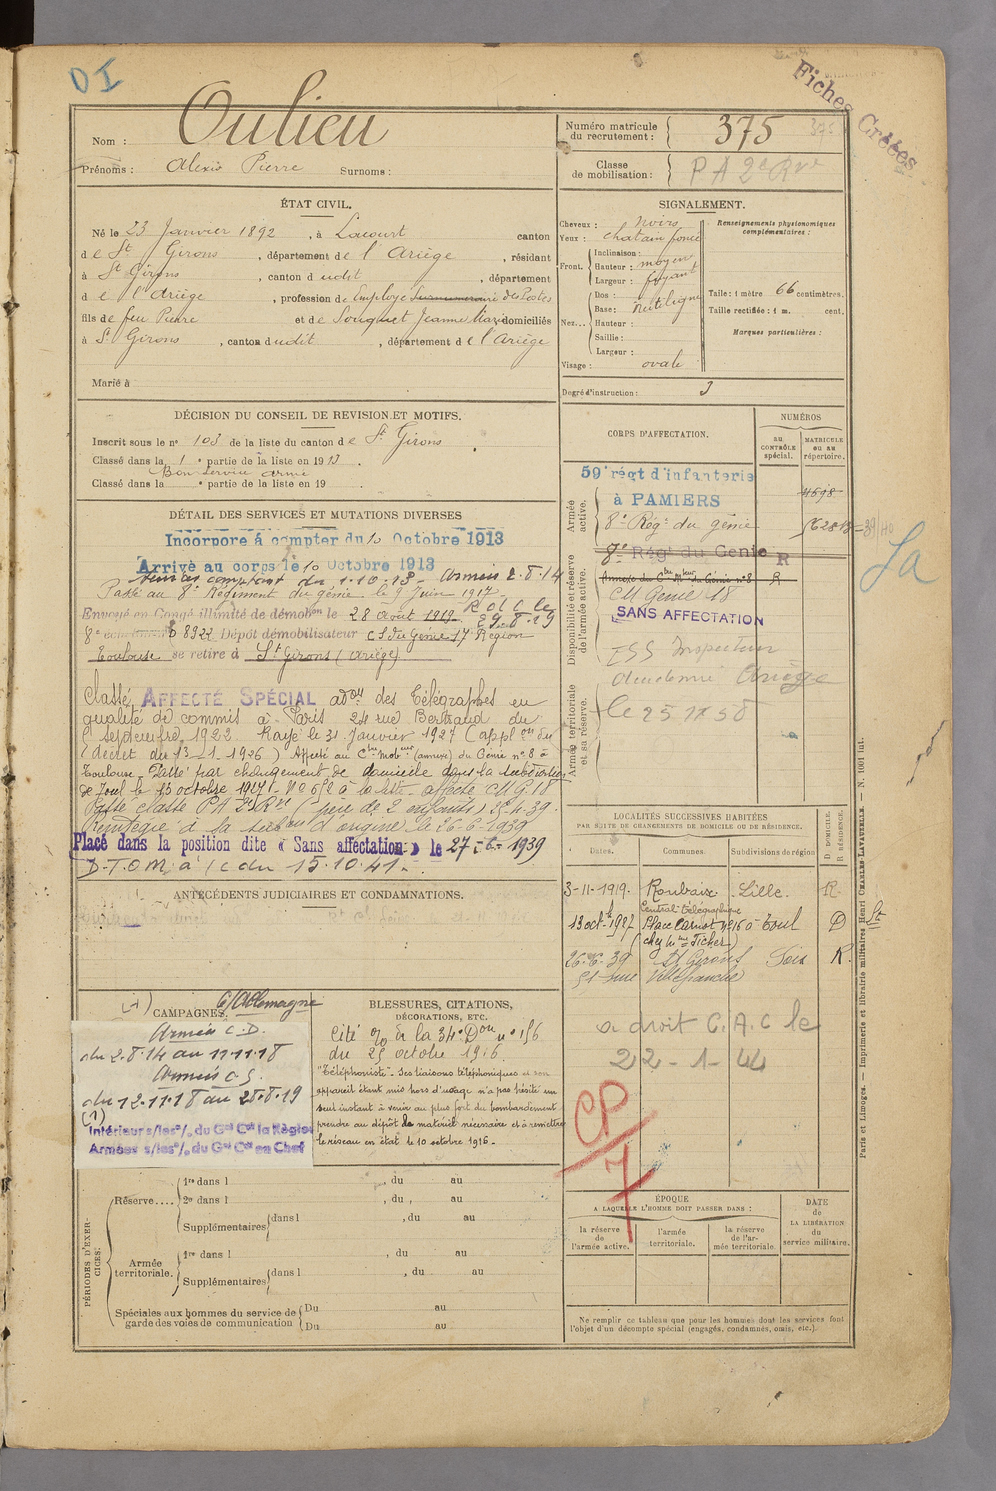 DI
Fiches Créées
Nom : Oulieu
Prénoms : Alexis Pierre Surnoms :
Numéro matricule du recrutement : 375
Classe de mobilisation : P A 2e Rve
ÉTAT CIVIL.
Né le 23 Janvier 1892, à Lacourt canton
de St Girons, département de l'Ariège, résidant
à St Girons, canton dudit, département
de l'Ariège, profession de Employé Surnuméraire des Postes
fils de feu Pierre et de Souquet Jeanne Marie domiciliés
à St Girons, canton dudit, département de l'Ariège
Marié à
SIGNALEMENT.
Cheveux : noirs
Yeux : chatain foncé
Front. Inclinaison :
Hauteur : moyen
Largeur : fuyant
Nez... Dos :
Base : rectiligne
Hauteur :
Saillie :
Largeur :
Visage : ovale
Renseignements physionomiques complémentaires :
Taille : 1 mètre 66 centimètres.
Taille rectifiée : 1 m. cent.
Marques particulières :
Degré d'instruction : 3
DÉCISION DU CONSEIL DE REVISION ET MOTIFS.
Inscrit sous le n° 103 de la liste du canton de St Girons
Classé dans la 1e partie de la liste en 1913.
Bon service armé
Classé dans la e partie de la liste en 19 .
DÉTAIL DES SERVICES ET MUTATIONS DIVERSES
Incorporé à compter du 10 Octobre 1913
Arrivé au corps le 10 Octobre 1913
Services comptant du 1-10-13 - Armées 2-8-14
Passé au 8e Régiment du génie le 9 Juin 1917
Envoyé en Congé illimité de démobon le 28 août 1919
29-8-19
8922 Dépôt démobilisateur CS du Génie 17e Région
Toulouse se retire à St Girons (Ariège)
Classé AFFECTÉ SPÉCIAL adon des Télégraphes en
qualité de commis à Paris 24 rue Bertrand du
septembre 1922 Rayé le 31 janvier 1927 (applon du
décret du 13-1-1926) Affecté au Ctre Mobeur (annexe) du Génie n° 8 à
Toulouse. Passé par changement de domicile dans la subdivision
de Toul le 13 octobre 1927
Passé classe PA 2e Rve (père de 2 enfants) 25-4-39.
Réintégré à la subon d'origine le 26-6-1939
Placé dans la position dite « Sans affectation » le 27-6-1939
D.T.O.M. à / c du 15.10.41.
CORPS D'AFFECTATION.
NUMÉROS
AU CONTRÔLE spécial.
MATRICULE ou au répertoire.
Armée active.
59e régt d'infanterie
à PAMIERS
4698
8e Régt du génie
Disponibilité et réserve de l'armée active.
8e Régt du Génie R
Annexe du Ctre Mteur du Génie n° 8 R
CM Génie 18
SANS AFFECTATION
Armée territoriale et sa réserve.
ISS Inspection
académie Ariège
le 25 11 58
La
ANTÉCÉDENTS JUDICIAIRES ET CONDAMNATIONS.
LOCALITÉS SUCCESSIVES HABITÉES
PAR SUITE DE CHANGEMENTS DE DOMICILE OU DE RÉSIDENCE.
D. DOMICILE. R. RÉSIDENCE.
Dates. Communes. Subdivisions de région
3-11-1919. Roubaix Lille. R.
Central télégraphique
13 octbre 1927 Place Carnot n° 16 à Toul D
(chez Mme Ficher)
26-6-39 St Girons Foix R.
51 rue Villefranche
a droit C.A.C le
22-1-44
CP
7
CAMPAGNES.
(1) C/Allemagne
Armées C.D.
du 2-8-14 au 11-11-18
Armées C.S.
du 12-11-18 au 28-8-19
(1)
Intérieur s/les o/. du Gal Cdt la Région
Armées s/les o/. du Gal Cdt en Chef
BLESSURES, CITATIONS,
DÉCORATIONS, ETC.
Cité o/o de la 34e Don n° 156
du 25 octobre 1916.
"Téléphoniste - Ses liaisons téléphoniques et son
appareil étant mis hors d'usage n'a pas hésité un
seul instant à venir au plus fort du bombardement
prendre au dépôt de matériel nécessaire et à remettre
le réseau en état le 10 octobre 1916 -
PÉRIODES D'EXERCICES.
Réserve.... 1re dans l , du au
2e dans l , du au
Supplémentaires dans l , du au
Armée territoriale. 1re dans l , du au
Supplémentaires dans l , du au
Spéciales aux hommes du service de garde des voies de communication
Du au
Du au
ÉPOQUE
A LAQUELLE L'HOMME DOIT PASSER DANS :
la réserve de l'armée active.
l'armée territoriale.
la réserve de l'armée territoriale.
DATE de LA LIBÉRATION du service militaire.
Ne remplir ce tableau que pour les hommes dont les services font
l'objet d'un décompte spécial (engagés, condamnés, omis, etc.).
Paris et Limoges. — Imprimerie et librairie militaires Henri CHARLES-LAVAUZELLE. — N. 1001 lut.